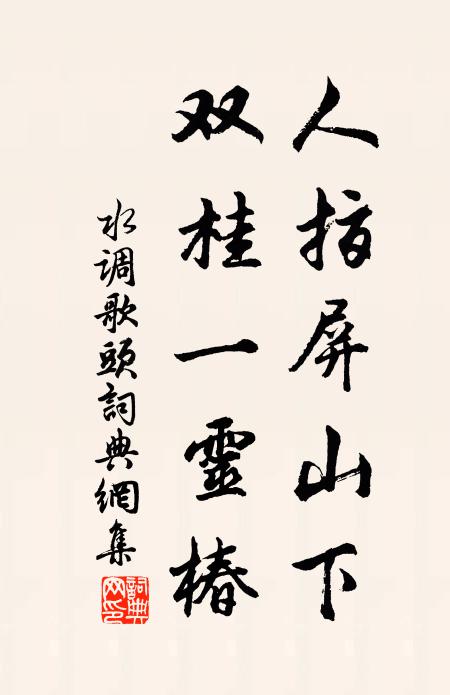 人指屏山下
双桂一靈椿
水调歌頭詞典網集
詞典网印